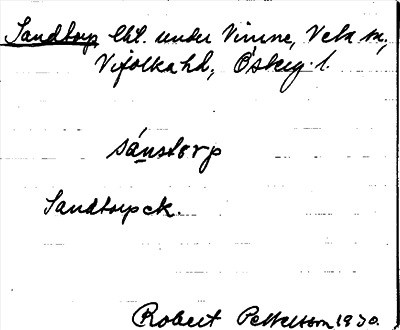 Sandtorp lht. under Vinne, Veta sn,
Vifolka hd, Östерg. l.
sánstorp
Sandtorpck.
Robert Pettersson 1930.